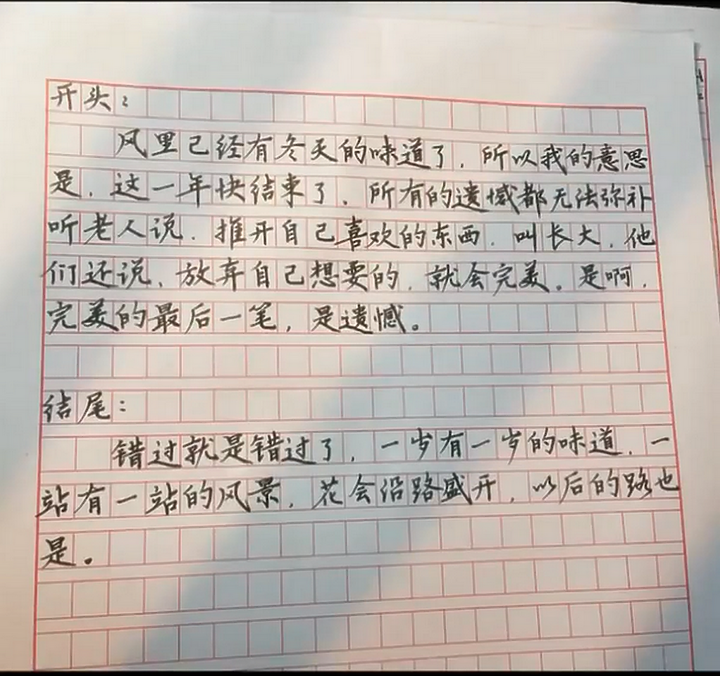 开头：
风里已经有冬天的味道了，所以我的意思
是，这一年快结束了、所有的遗憾都无法弥补
听老人说，推开自己喜欢的东西，叫长大，他
们还说、放弃自己想要的，就会完美。是啊，
完美的最后一笔，是遗憾。
结尾：
错过就是错过了，一岁有一岁的味道，一
站有一站的风景，花会沿路盛开，以后的路也
是。